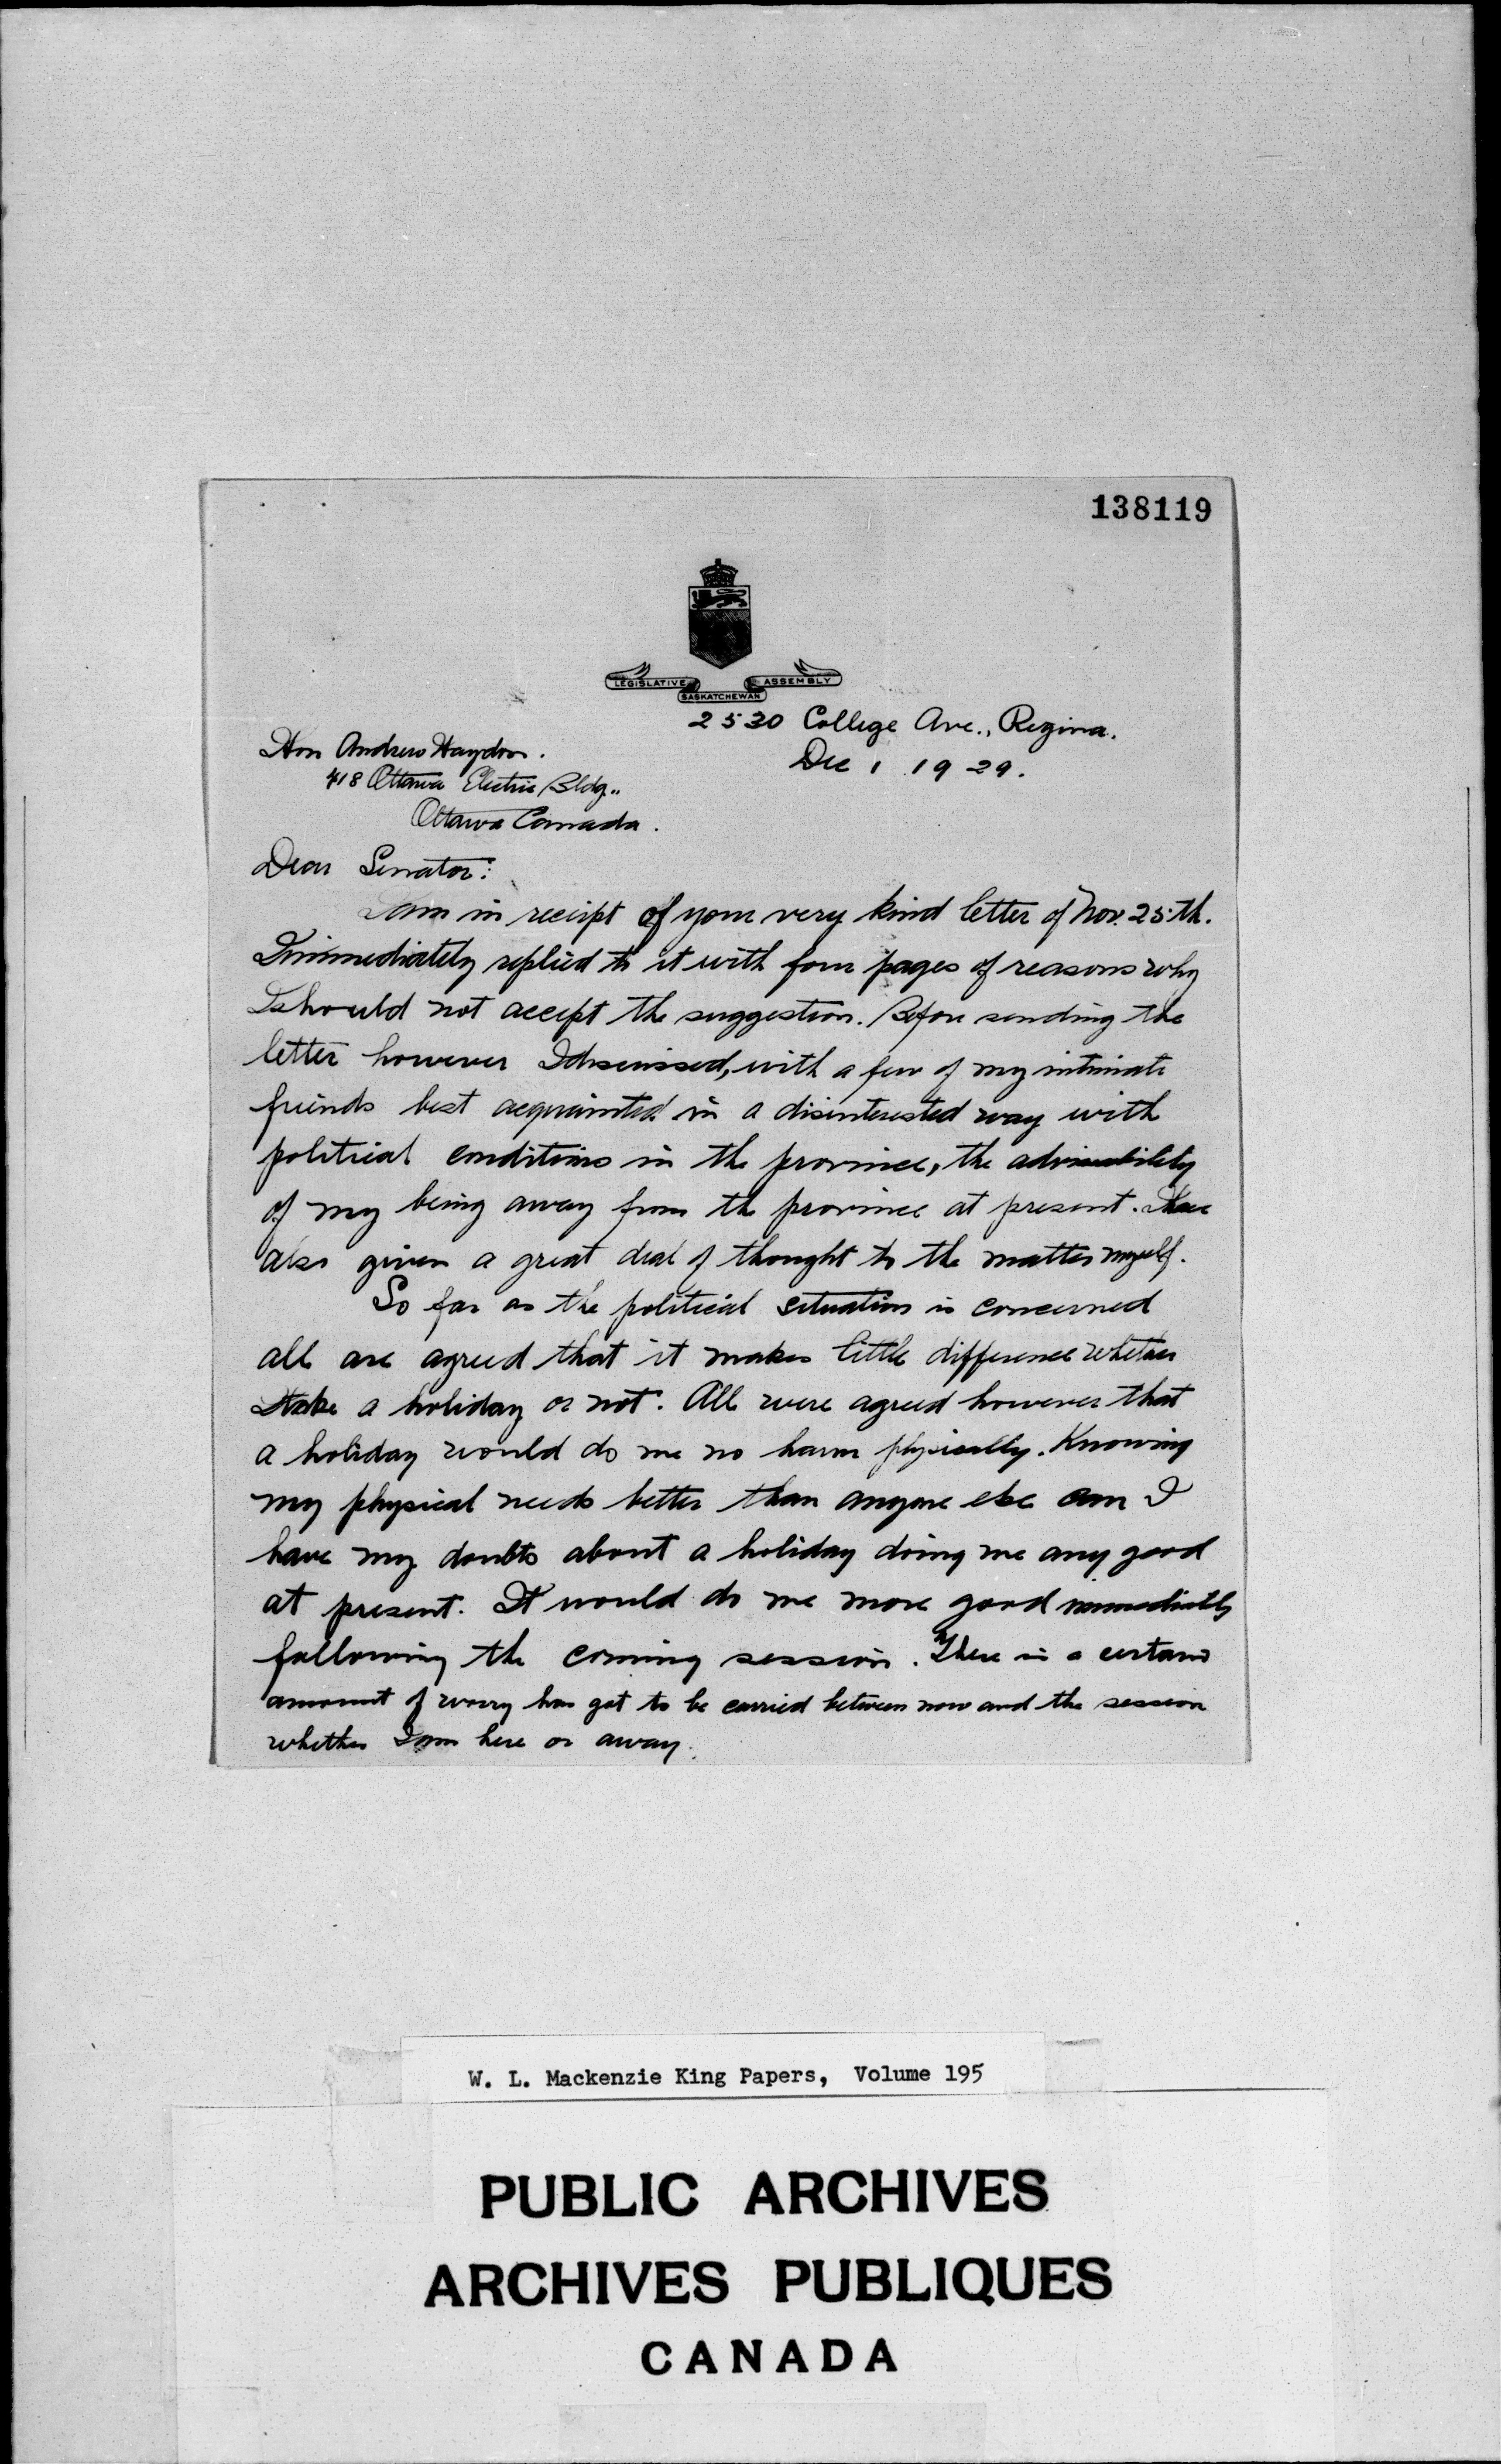 138119
LEGISLATIVE ASSEMBLY
SASKATCHEWAN
2530 College Ave., Regina.
Dec 1 1929.
Hon Andrew Haydon.
418 Ottawa Electric Bldg.,
Ottawa Canada.
Dear Senator:
I am in receipt of your very kind letter of Nov. 25th.
I immediately replied to it with four pages of reasons why
I should not accept the suggestion. Before sending the
letter however I discussed, with a few of my intimate
friends best acquainted in a disinterested way with
political conditions in the province, the advisability
of my being away from the province at present. I have
also given a great deal of thought to the matter myself.
So far as the political situation is concerned
all are agreed that it makes little difference whether
I take a holiday or not. All were agreed however that
a holiday would do me no harm physically. Knowing
my physical needs better than anyone else can I
have my doubts about a holiday doing me any good
at present. It would do me more good immediately
following the coming session. There is a certain
amount of worry has got to be carried between now and the session
whether I am here or away.
W. L. Mackenzie King Papers, Volume 195
PUBLIC ARCHIVES
ARCHIVES PUBLIQUES
CANADA